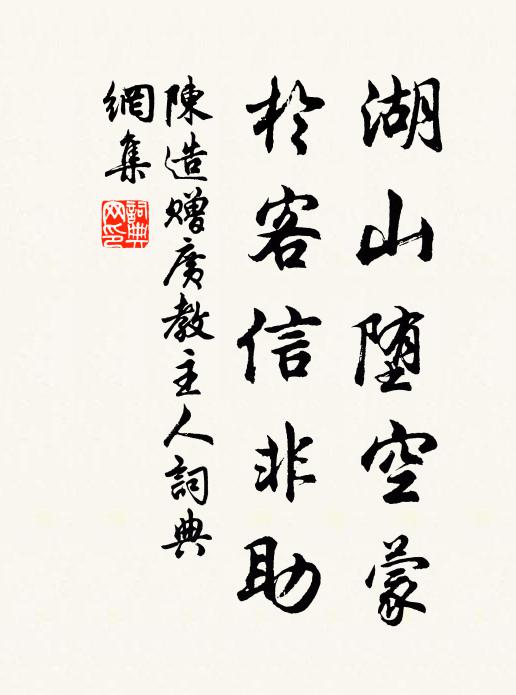 湖山堕空蒙
於客信非助
陳造贈廣教主人詞典
網集
詞典網印